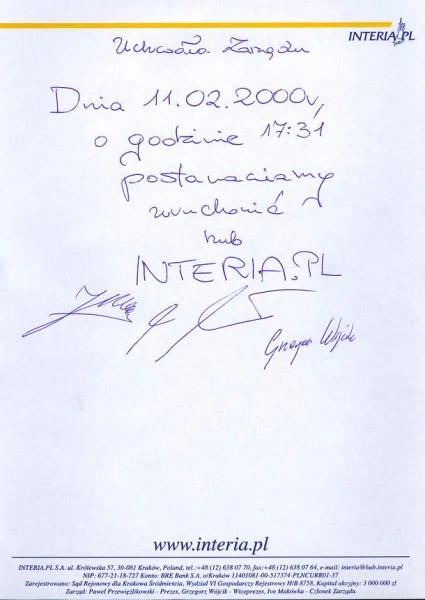 INTERIA.PL
Uchwała Zarządu
Dnia 11.02.2000r,
o godzinie 17:31
postanawiamy
uruchomić
hub
INTERIA.PL
Grzegorz Wójcik
www.interia.pl
INTERIA.PL S.A. ul. Królewska 57, 30-081 Kraków, Poland, tel.:+48 (12) 638 07 70, fax:+48 (12) 638 07 64, e-mail: interia@hub.interia.pl
NIP: 677-21-18-727 Konto: BRE Bank S.A. o/Kraków 11401081-00-517374-PLNCURR01-37
Zarejestrowano: Sąd Rejonowy dla Krakowa Śródmieścia, Wydział VI Gospodarczy Rejestrowy H/B 8758, Kapitał akcyjny: 3 000 000 zł
Zarząd: Paweł Przewięźlikowski - Prezes, Grzegorz Wójcik - Wiceprezes, Ivo Makówka - Członek Zarządu